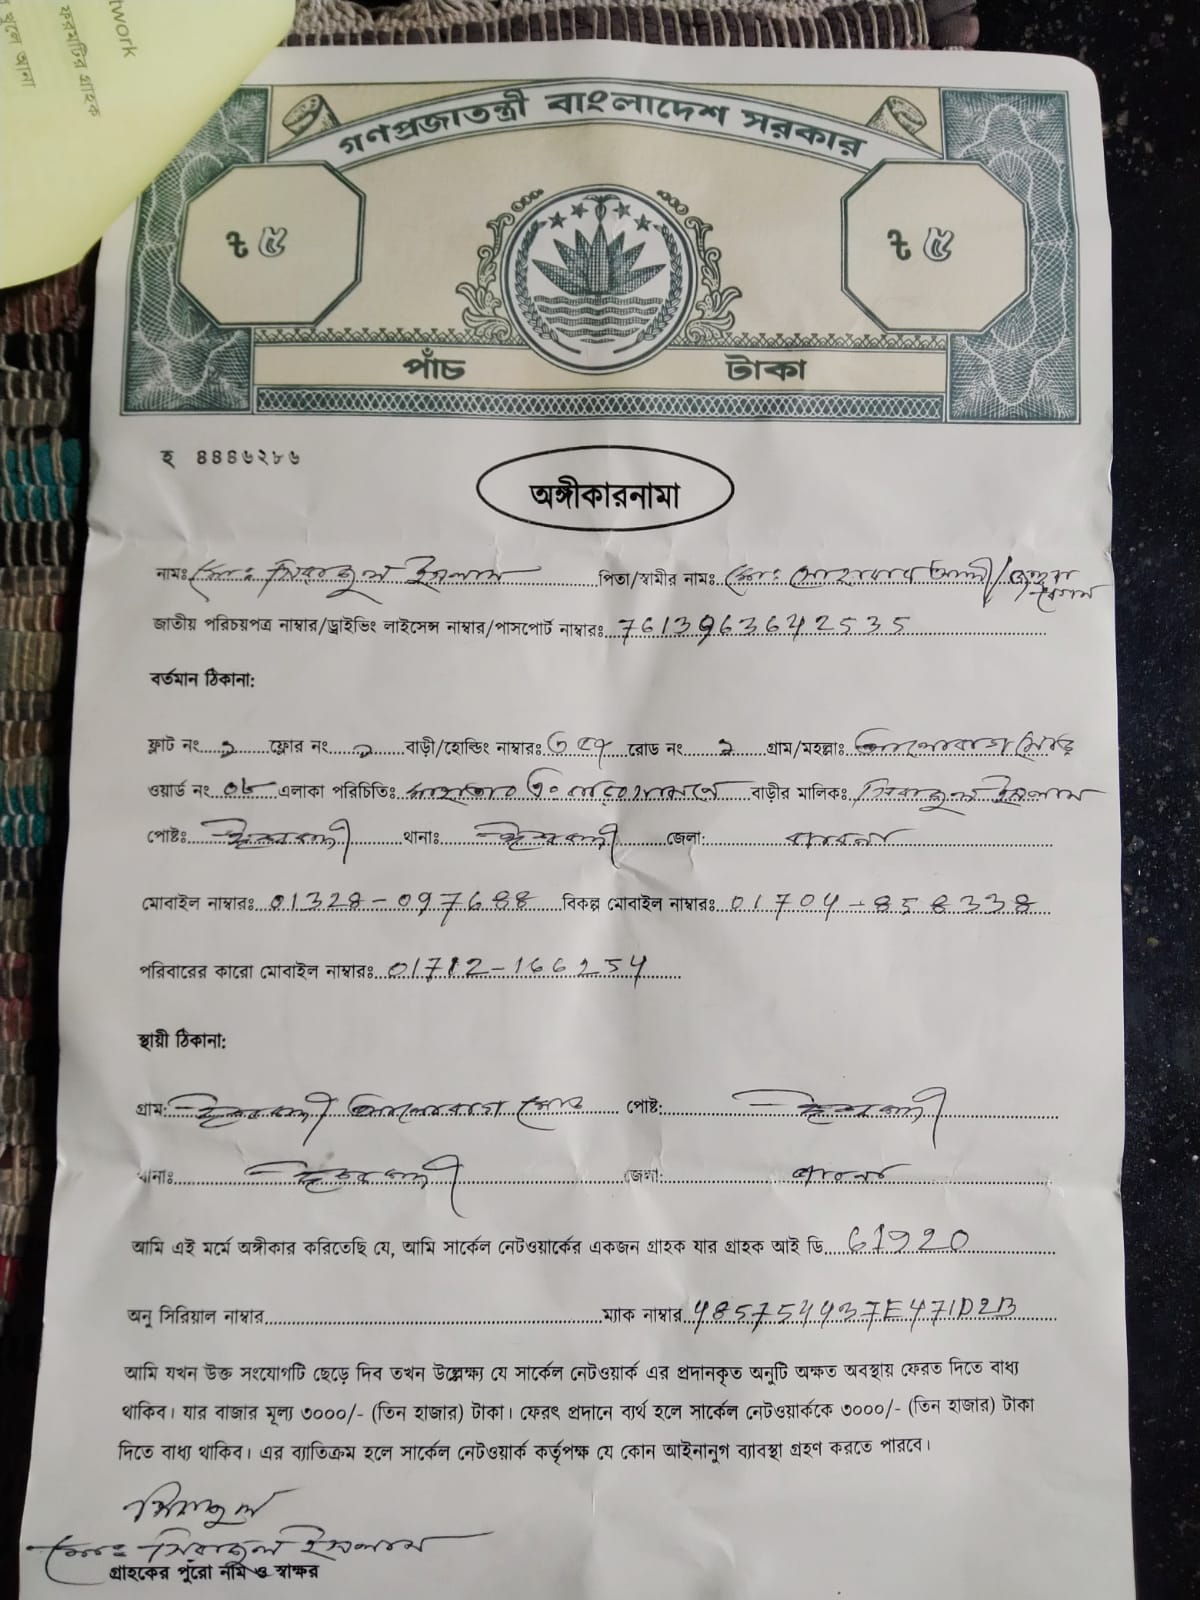 twork
ফরমটির গ্রাহক
খুলে আনা
গণপ্রজাতন্ত্রী বাংলাদেশ সরকার
৳ ৫ ৳ ৫
পাঁচ টাকা
হ ৪৪৪৬২৮৬
অঙ্গীকারনামা
নামঃ মোঃ সিরাজুল ইসলাম পিতা/স্বামীর নামঃ মোঃ সোহরাব আলী/জহুরা বেগম
জাতীয় পরিচয়পত্র নাম্বার/ড্রাইভিং লাইসেন্স নাম্বার/পাসপোর্ট নাম্বারঃ 7613963642535
বর্তমান ঠিকানা:
ফ্লাট নং ১ ফ্লোর নং ১ বাড়ী/হোল্ডিং নাম্বারঃ রোড নং ১ গ্রাম/মহল্লাঃ আলোবাগ মোড়
ওয়ার্ড নং ০৮ এলাকা পরিচিতিঃ বাড়ীর মালিকঃ সিরাজুল ইসলাম
পোষ্টঃ ঈশ্বরদী থানাঃ ঈশ্বরদী জেলা: পাবনা
মোবাইল নাম্বারঃ 01328-097688 বিকল্প মোবাইল নাম্বারঃ 01704-858338
পরিবারের কারো মোবাইল নাম্বারঃ 01712-166254
স্থায়ী ঠিকানা:
গ্রাম: ঈশ্বরদী আলোবাগ মোড় পোষ্ট: ঈশ্বরদী
থানাঃ ঈশ্বরদী জেলা: পাবনা
আমি এই মর্মে অঙ্গীকার করিতেছি যে, আমি সার্কেল নেটওয়ার্কের একজন গ্রাহক যার গ্রাহক আই ডি 61920
অনু সিরিয়াল নাম্বার ম্যাক নাম্বার 485754437E471D2B
আমি যখন উক্ত সংযোগটি ছেড়ে দিব তখন উল্লেক্ষ্য যে সার্কেল নেটওয়ার্ক এর প্রদানকৃত অনুটি অক্ষত অবস্থায় ফেরত দিতে বাধ্য
থাকিব। যার বাজার মূল্য ৩০০০/- (তিন হাজার) টাকা। ফেরৎ প্রদানে ব্যর্থ হলে সার্কেল নেটওয়ার্ককে ৩০০০/- (তিন হাজার) টাকা
দিতে বাধ্য থাকিব। এর ব্যাতিক্রম হলে সার্কেল নেটওয়ার্ক কর্তৃপক্ষ যে কোন আইনানুগ ব্যাবস্থা গ্রহণ করতে পারবে।
সিরাজুল
মোঃ সিরাজুল ইসলাম
গ্রাহকের পুরো নাম ও স্বাক্ষর